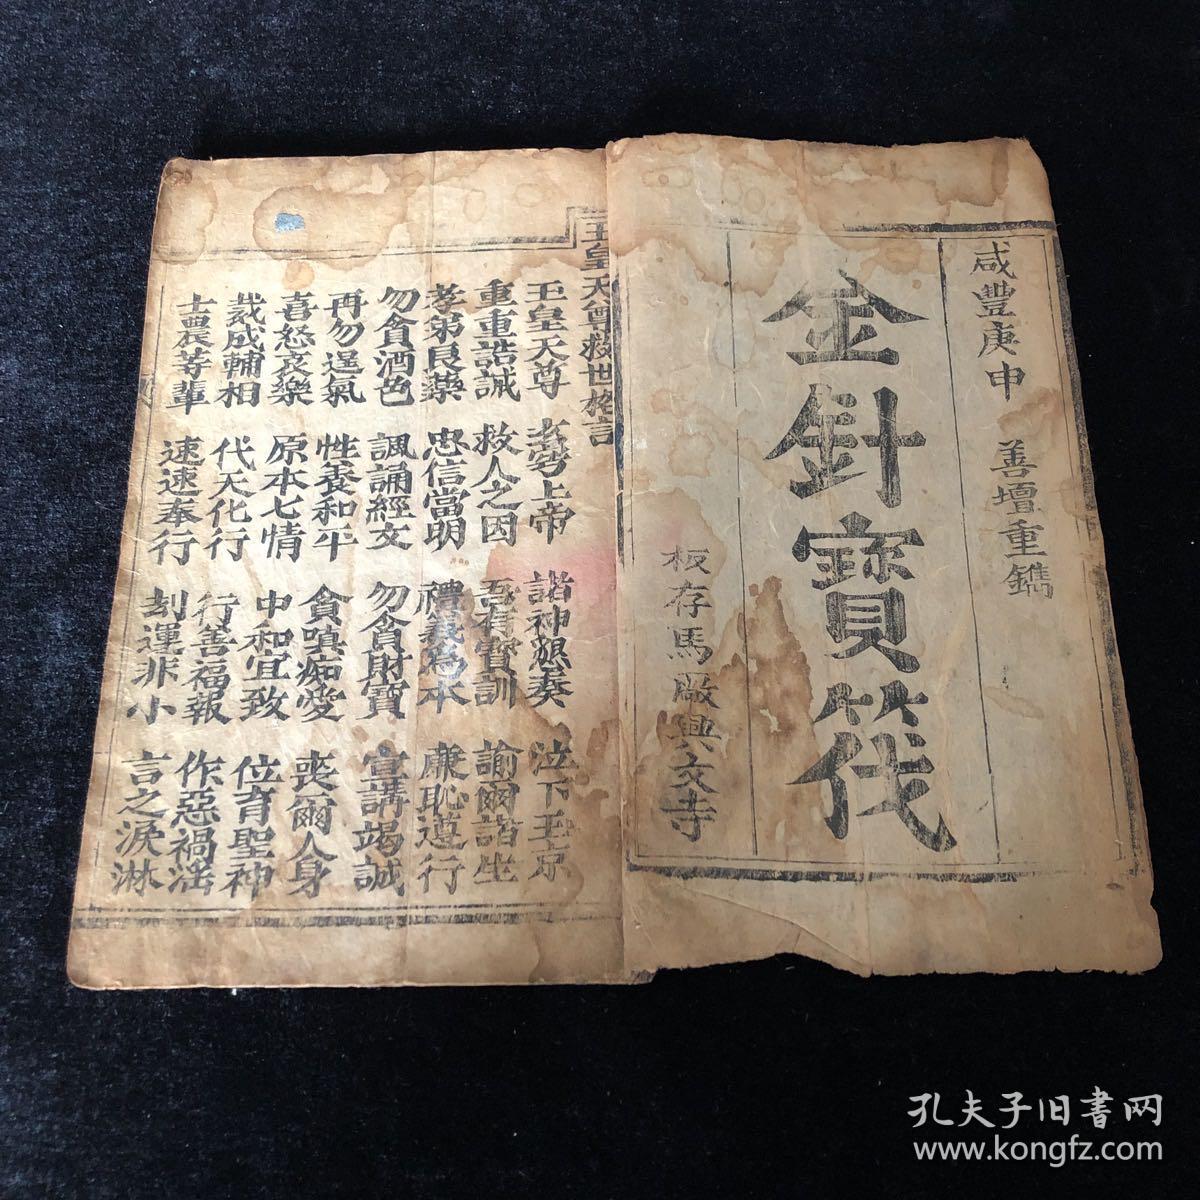 咸豐庚申 善壇重鐫
金針寶筏
板存馬厰興文寺
玉皇天尊救世格言
玉皇天尊 上帝 諸神懇奏 泣下玉京
重重誥誡 救人之因 吾有寶訓 諭爾諸坐
孝弟良藥 忠信當明 禮義為本 廉恥遵行
勿貪酒色 諷誦經文 勿貪財寶 宣講竭誠
再勿逞氣 性養和平 貪嗔痴愛 喪爾人身
喜怒哀樂 原本七情 中和宜致 位育聖神
裁成輔相 代天化行 行善福報 作惡禍淫
士農等輩 速速奉行 刻運非小 言之淚淋
孔夫子旧书网
www.kongfz.com